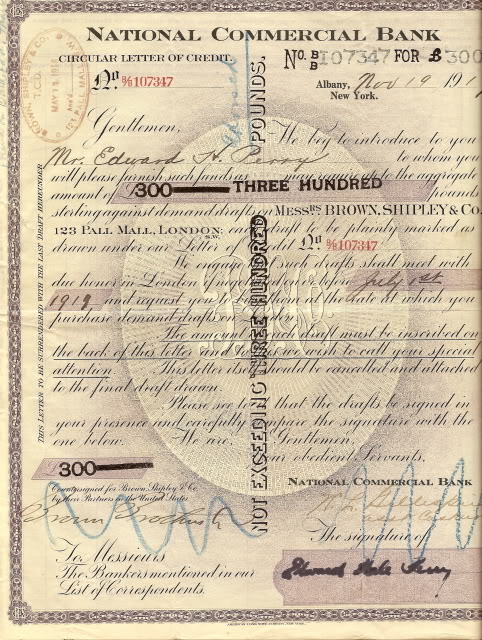 NATIONAL COMMERCIAL BANK
CIRCULAR LETTER OF CREDIT.
No. B/B 107347 FOR £ 300
No B/B 107347
Albany, Nov 19 191
New York.
BROWN, SHIPLEY & CO.
MAY 13
123 PALL MALL
Gentlemen,
We beg to introduce to you
Mr. Edward H. Perry to whom you
will please furnish such funds as may require up to the aggregate
amount of 300 THREE HUNDRED pounds
sterling against demand drafts on MESSRS BROWN, SHIPLEY & CO.
123 PALL MALL, LONDON, S.W. each draft to be plainly marked as
drawn under our Letter of Credit No B/B 107347
We engage that such drafts shall meet with
due honor in London if negotiated on or before July 1st
1919 and request you to buy them at the rate at which you
purchase demand drafts on London.
The amount of each draft must be inscribed on
the back of this letter and to this we wish to call your special
attention. This letter itself should be cancelled and attached
to the final draft drawn.
Please see to it that the drafts be signed in
your presence and carefully compare the signature with the
one below. We are, Gentlemen,
your obedient Servants,
300
NATIONAL COMMERCIAL BANK
Countersigned for Brown Shipley & Co.
by their Partners in the United States
Brown Brothers & Co
The signature of
To Messieurs
The Bankers mentioned in our
List of Correspondents.
Edward Hale Perry
THIS LETTER TO BE SURRENDERED WITH THE LAST DRAFT HEREUNDER
NOT EXCEEDING THREE HUNDRED POUNDS.
AMERICAN BANK NOTE COMPANY, NEW YORK.